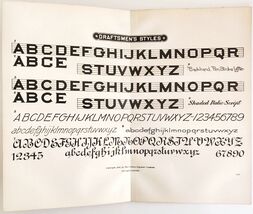 DRAFTSMEN'S STYLES
ABCDEFGHIJKLMNOPQR
ABCE STUVWXYZ
ABCDEFGHIJKLMNOPQR
ABCE STUVWXYZ Shaded Italic Script
ABCDEFGHIJKLMNOPQRSTUVWXYZ-123456789
abcdefghijklmnopqrstuvwxyz abcdefghijklmnopqrstuvwxyz
ABCDEFGHIJKLMNOPQRSTUVWXYZ
12345 abcdefghijklmnopqrstuvwxyz 67890